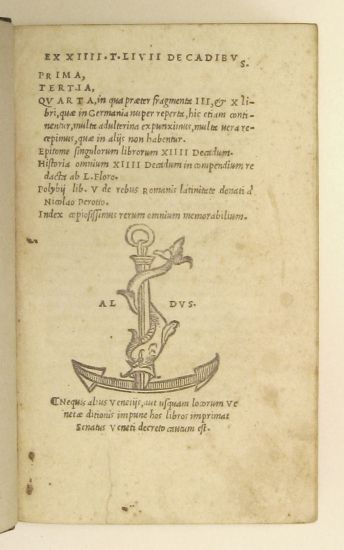 EX XIIII. T. LIVII DECADIBVS.
PRIMA,
TERTIA,
QVARTA, in qua præter fragmenta III, & X li-
bri, quæ in Germania nuper reperta, hic etiam conti-
nentur, multa adulterina expunximus, multa vera re-
cepimus, quæ in alijs non habentur.
Epitome singulorum librorum XIIII Decadum.
Historia omnium XIIII Decadum in compendium re
dacta ab L. Floro.
Polybij lib. V de rebus Romanis latinitate donati à
Nicolao Perotto.
Index copiosissimus rerum omnium memorabilium.
AL DVS.
Nequis alius Venetijs, aut usquam locorum Ve
netæ ditionis impune hos libros imprimat
Senatus Veneti decreto cautum est.